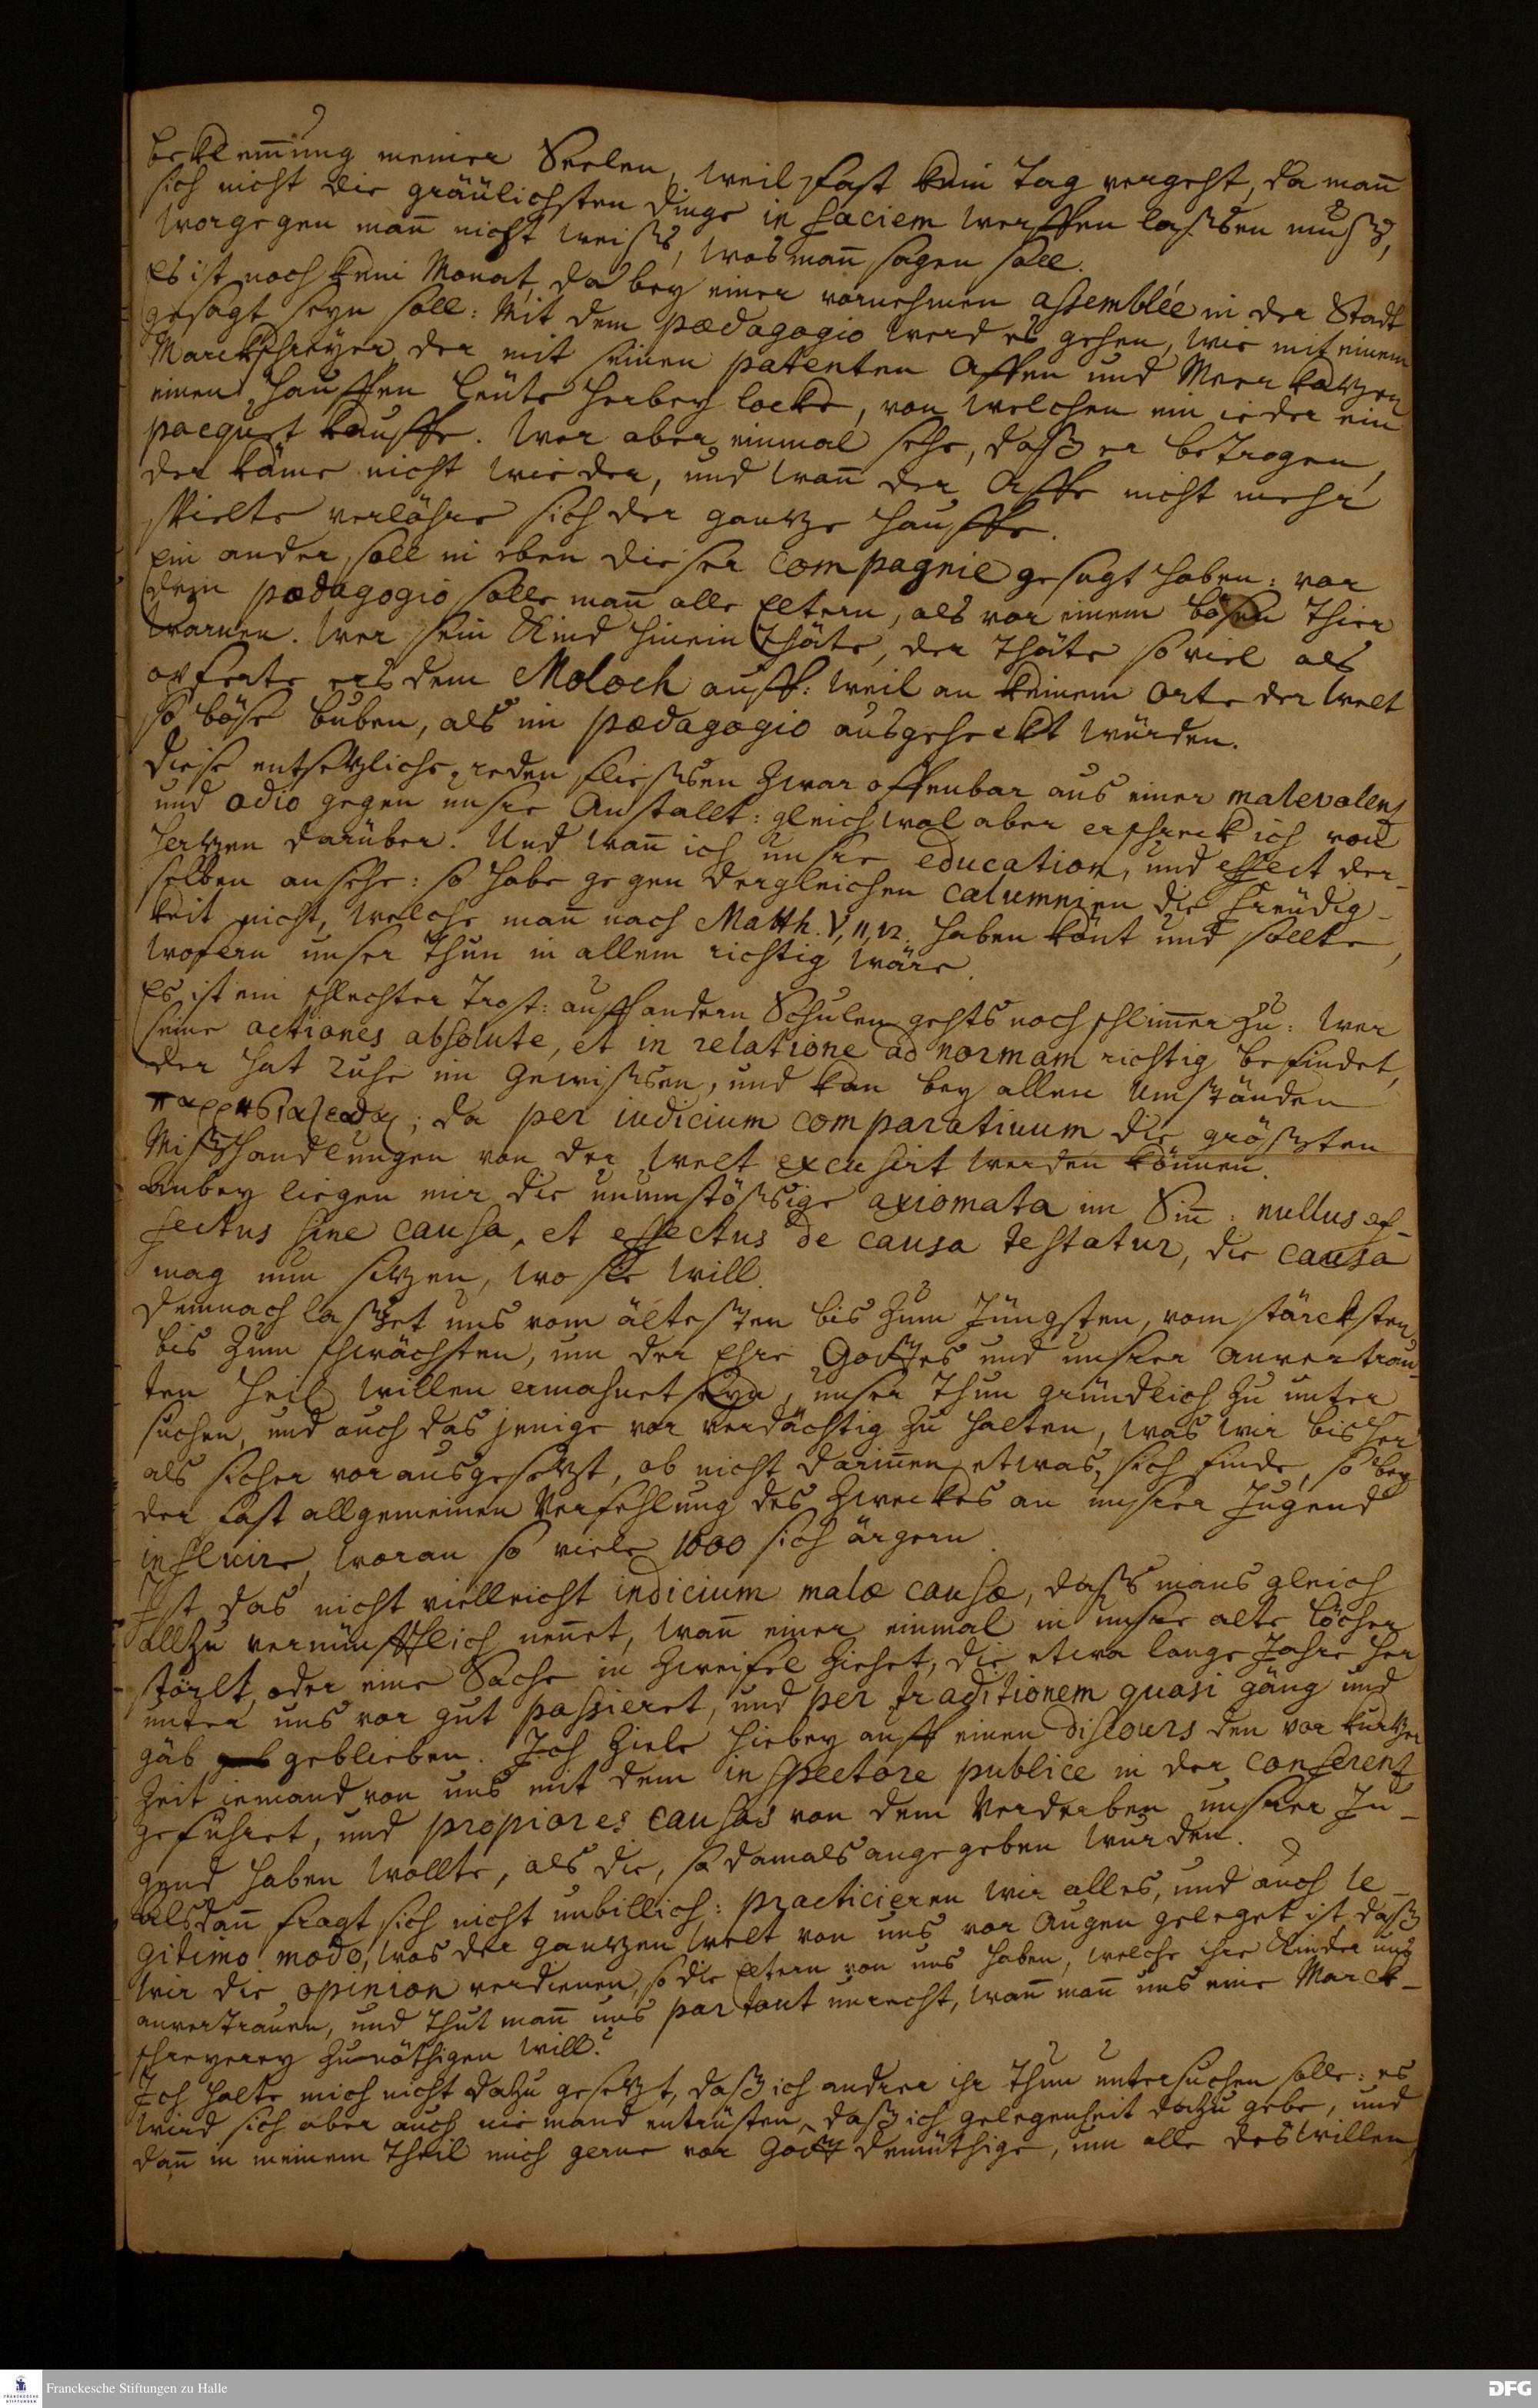 beklem̄ung meiner Seelen, weil fast kein Tag vergeht, da man̄
sich nicht die gräülichsten dinge in faciem werffen lassen muß,
worgegen man̄ nicht weiß, was man̄ sagen soll.
Es ist noch kein Monat, da bey einer vornehmen assemblée in der Stadt
gesagt seyn soll: Mit dem pædagogio werd es gehen, wie mit einem
Marckschreyer, der mit seinen patenten Affen und Meerkatzen
einen Hauffen Leute herbey locke, von welchen ein ieder ein
pacquet kauffe. Wer aber einmal sehe, daß er betrogen,
der käme nicht wieder, und wan̄ der Affe nicht mehr
spielte verlöhre sich der gantze Hauffe.
Ein ander soll in eben dieser Compagnie gesagt haben: vor
dem pædagogio solle man̄ alle Eltern, als vor einem bösen Thier
warnen. Wer sein Kind hinein thäte, der thäte so viel als
opferte ers dem Moloch auff: weil an keinem Orte der Welt
so böse buben, als im pædagogio ausgeheckt würden.
Diese entsetzliche reden fliessen zwar offenbar aus einer malevolenz
und odio gegen unsre Anstallt: gleichwol aber erschreck ich von
Hertzen darüber. Und wan̄ ich unsre education, und effect der-
selben ansehe: so habe gegen dergleichen calumnien die Freudig-
keit nicht, welche man̄ nach Matth. V, 11, 12. haben könt und sollte,
wofern unser thun in allem richtig wäre.
Es ist ein schlechter Trost: auff andern Schulen gehts noch schlim̄er zu: Wer
seine actiones absolute, et in relatione ad normam richtig befindet,
der hat Ruhe im Gewissen, und kan bey allen Umständen
παρρησιάζεσθαι; da per iudicium comparativum die größten
Mißhandlungen von der Welt excusirt werden können.
Anbey liegen mir die unumstößige axiomata im Sin̄: nullus ef-
fectus sine causa, et effectus de causa testatur, die causa
mag nun sitzen, wo sie will.
Demnach lasset uns vom ältesten bis zum Jüngsten, vom stärcksten
bis zum schwächsten, um der Ehre Gottes und unsrer anvertrau-
ten Heil willen ermahnet seyn, unser Thun gründlich zu unter
suchen, und auch das jenige vor verdächtig zu halten, was wir bisher
als sicher voraus gesetzt, ob nicht darin̄en etwas sich finde, so bey
der fast allgemeinen Verfehlung des Zweckes an unsrer Jugend
influire, woran so viele 1000 sich ärgern.
Ist das nicht vielleicht indicium malæ causæ, daß mans gleich
allzu vernünfftlich nen̄et, wan̄ einer einmal in unsre alte Löcher
störlt, oder eine Sache in Zweifel ziehet, die etwa lange Jahre her
unter uns vor gut passieret, und per traditionem quasi gäng und
gäb geblieben. Ich ziele hiebey auff einen discours den vor kurtzer
Zeit iemand von uns mit dem inspectore publice in der Conferenz
geführet, und propiores causas von dem Verderben unsrer Ju-
gend haben wollte, als die, so damals angegeben wurden.
Alsdan̄ fragt sich nicht unbillich: practicieren wir alles, und auch le-
gitimo modo, was der gantzen Welt von uns vor Augen geleget ist, daß
wir die opinion verdienen, so die Eltern von uns haben, welche ihre Kinder uns
anvertrauen, und thut man̄ uns partout unrecht, wan̄ man̄ uns eine Marck-
schreyerey zunöthigen will?
Ich halte mich nicht dazu gesetzt, daß ich andrer ihr Thun untersuchen solle: es
wird sich aber auch niemand entrüsten, daß ich gelegenheit dazu gebe, und
dan̄ in meinem theil mich gerne vor Gott demüthige, um alle deswillen,
Franckesche Stiftungen zu Halle
DFG